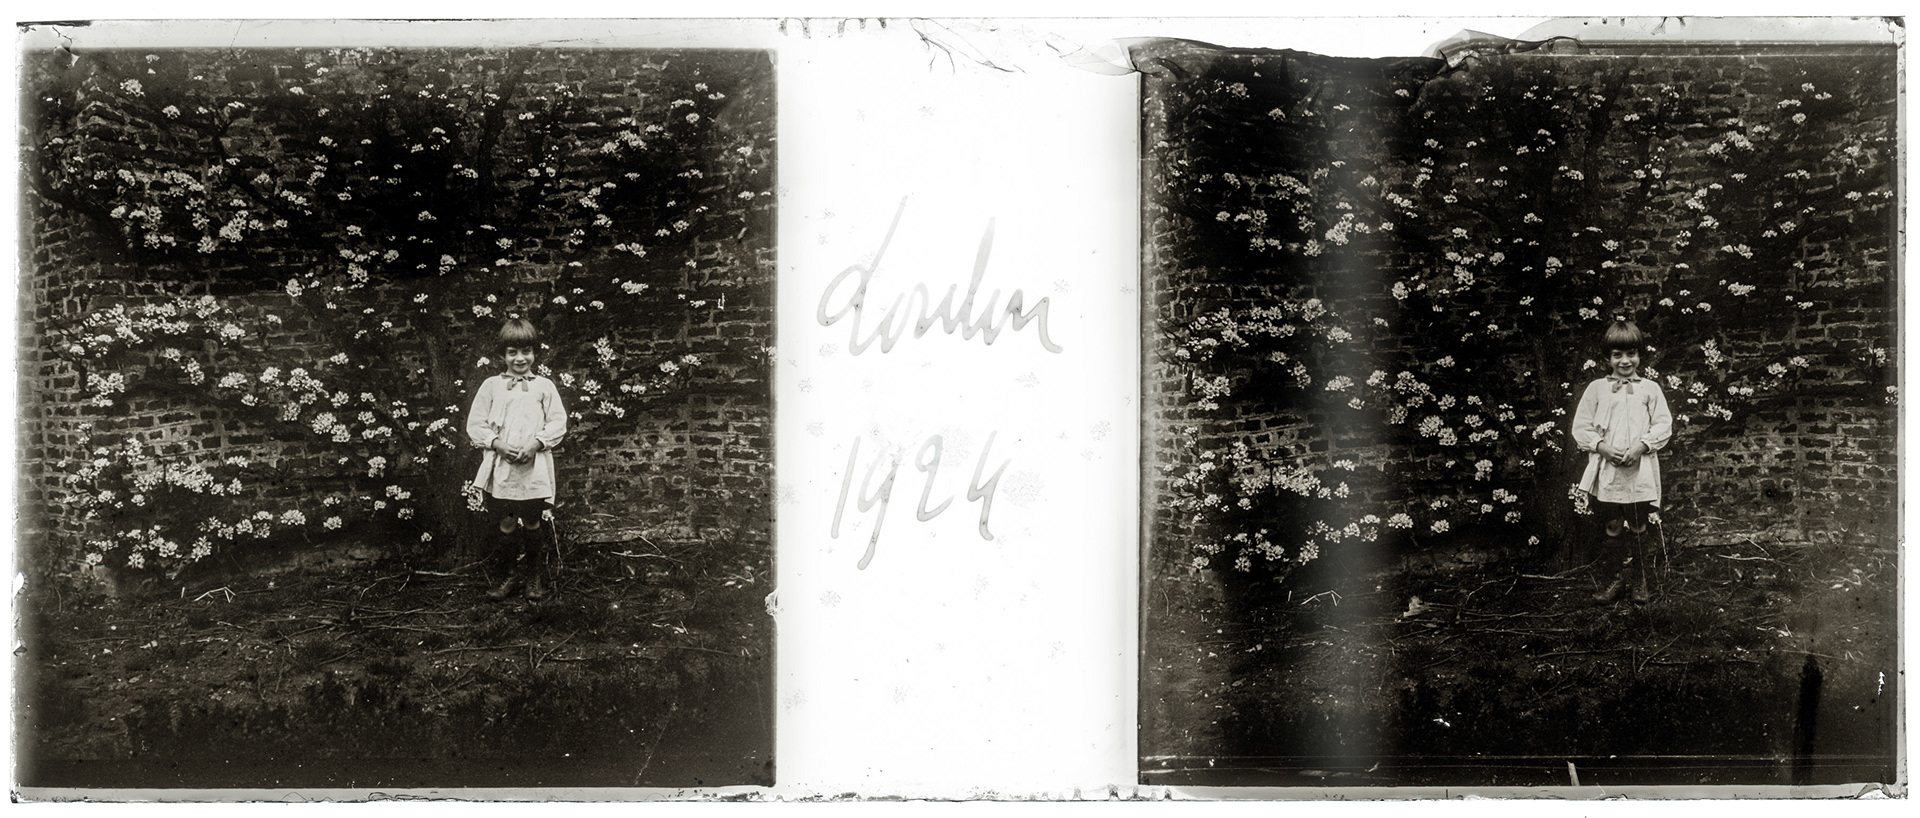 London
1924